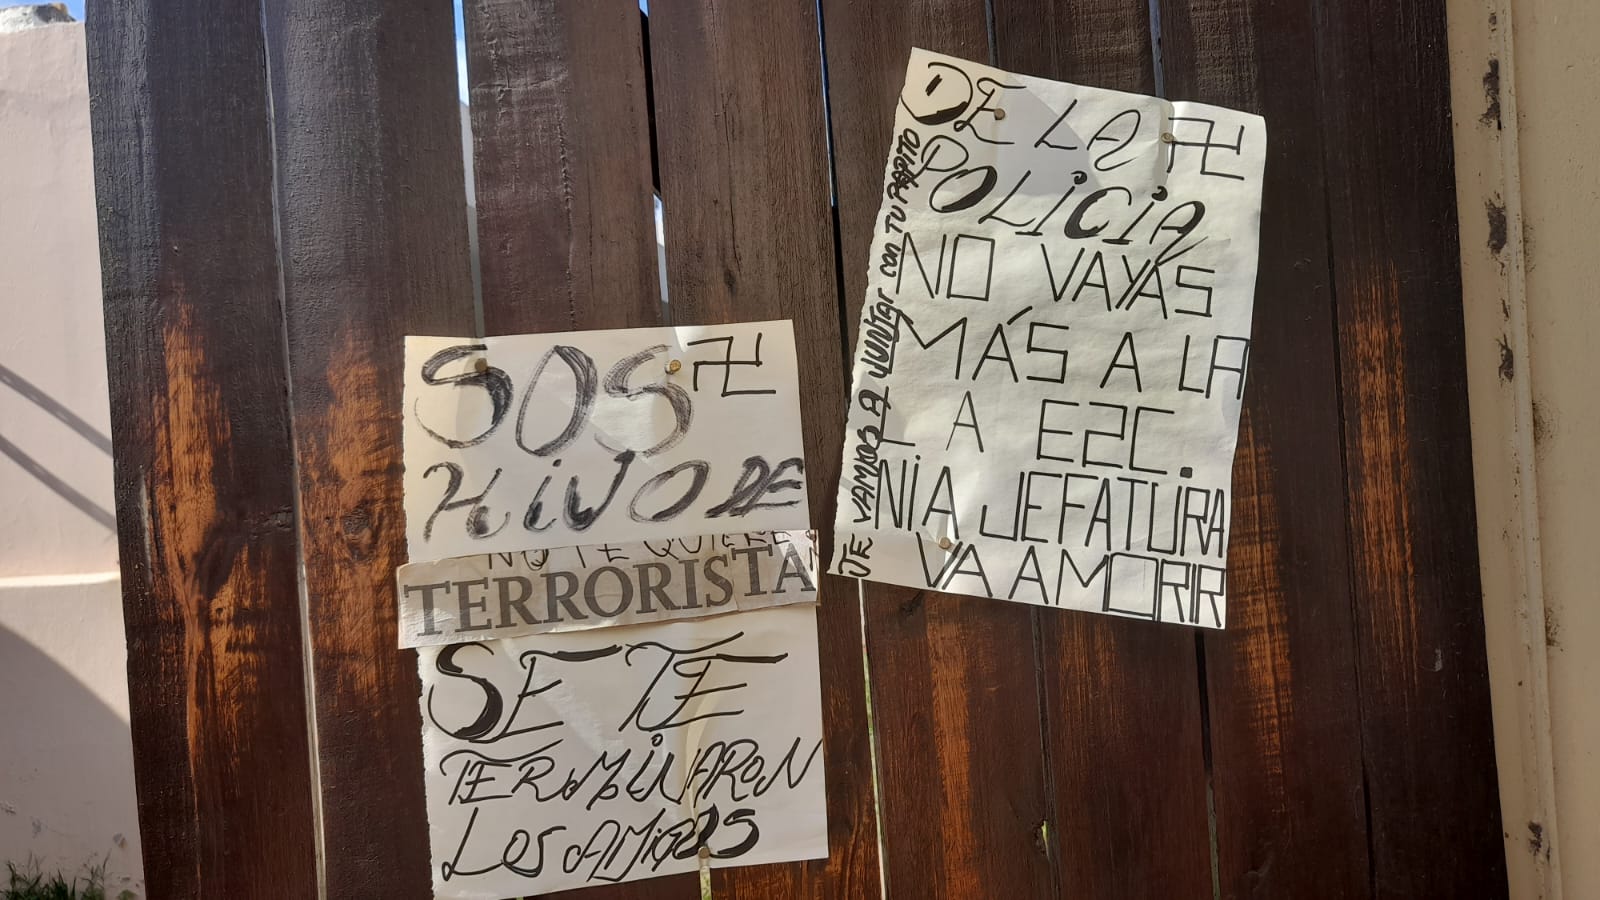 SOS 卍
HiJO DE
NO TE QUIERE
TERRORISTA
SE TE
TERMiNARON
LOS AMiGOS
DE LA 卍
POLiCiA
NO VAYAS
MÁS A LA
LA E2C.
NI A JEFATURA
VA A MORIR
TE VAMOS A JUNTAr con TU PAPi